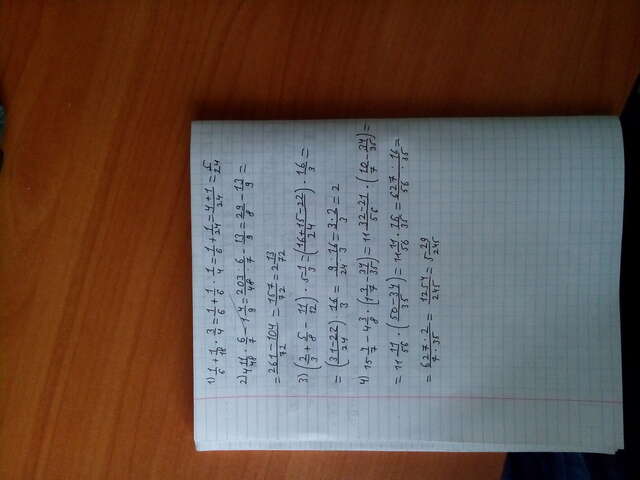 1) 1/6 + 1/18 · 3/4 = 1/6 + 1/6 · 1/4 = 1/6 + 1/24 = 4+1/24 = 5/24
2) 4 11/48 · 6/7 - 1 4/9 = 203/48 · 6/7 - 13/9 = 29/8 - 13/9 =
= 261-104/72 = 157/72 = 2 13/72
3) (2/3 + 5/8 - 11/12) · 5 1/3 = (16+15-22/24) · 16/3 =
= (31-22/24) · 16/3 = 9/24 · 16/3 = 3·2/3 = 2
4) 15 4/7 - 4 3/8 · (1 3/7 - 34/35) = 11 32-21/56 · (10/7 - 34/35) =
= 11 11/56 · (50-34/35) = 11 11/56 · 16/35 = 627/56 · 16/35 =
= 627·2/7·35 = 1254/245 = 5 29/245